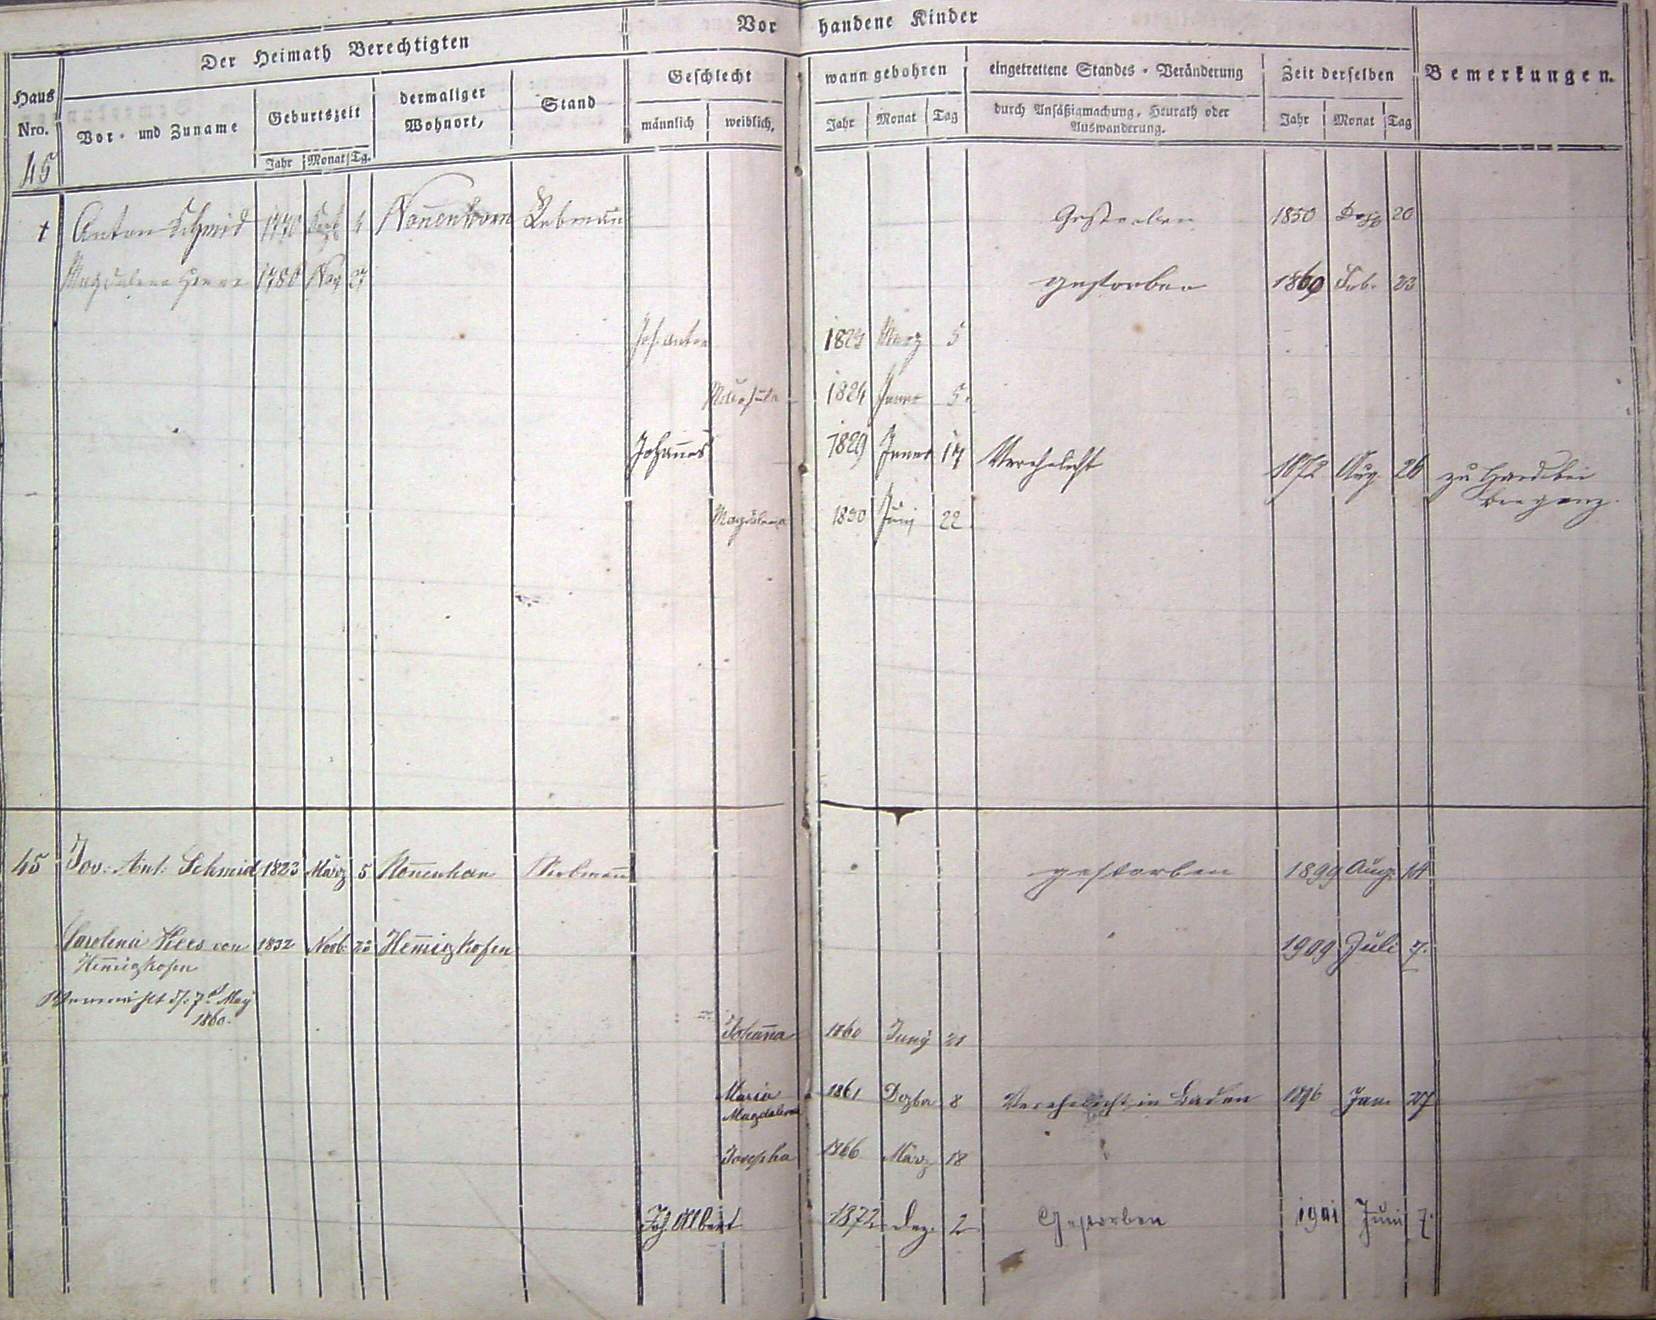 Vorhandene Kinder
Der Heimath Berechtigten
Haus Nro.
Vor- und Zuname
Geburtszeit
Jahr Monat Tg.
dermaliger Wohnort,
Stand
Geschlecht
männlich weiblich,
wann gebohren
Jahr Monat Tag
eingetrettene Standes-Veränderung
durch Ansäßigmachung, Heurath oder
Auswanderung.
Zeit derselben
Jahr Monat Tag
Bemerkungen.
45
† Anton Schmid 1770 1 Nonnenhorn Rebmann Gestorben 1850 Dez 20
Magdalena 1780 Nov 27 gestorben 1869 Feb. 23
Jos. Anton 1823 März 5
1824 Jenner 5.
Johannes 1829 Jenner 17 Verehelicht 1872 Aug. 26 zu Hard bei
Bregenz.
Magdalena 1830 Junj 22
45 Jos: Ant: Schmid 1823 März 5 Nonnenhorn Rebmann gestorben 1899 Aug. 14
Carolina von 1832 Novb Hem̄igkofen " 1909 Juli 7.
Hem̄igkofen
May
1860.
Johanna 1860 Juny 21
Maria 1861 Dezbr 8 Verehelicht in Baden 1896 Jan. 27
Magdalena
Josepha 1866 März 18
Jos Albert 1872 Dez. 2 Gestorben 1941 Juni 7.